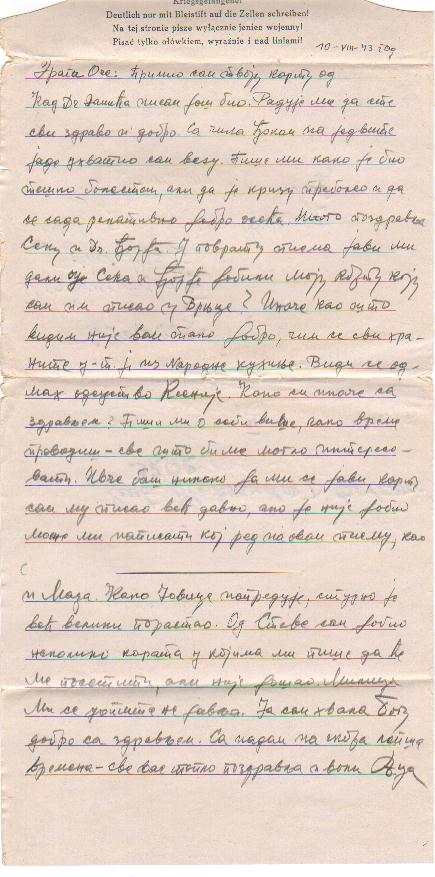 Kriegsgefangene!
Deutlich nur mit Bleistift auf die Zeilen schreiben!
Na tej stronie pisze wyłącznie jeniec wojenny!
Pisać tylko ołówkiem, wyraźnie i nad liniami!
10-VIII-43
Драги Оче: Примио сам твоју карту од
кад Др. писан јој био. Радује ми да сте
сви здраво и добро. Са чика на једвите
јаде ухватио сам везу. Пише ми како је био
тешко болестан, али да је кризу пребољо и да
се сада релативно добро осећа. поздравља
Секу и Др. Ђорђа. У поврату писма јави ми
дали су Сека и Ђорђе добили моју карту коју
сам им писао у ? Иначе као што
видим није вам тако добро, чим се сви хра-
ните у-т.ј из Народне кухиње. Види се од-
мах одсуство Ксеније. Како си иначе са
здрављем? Пиши ми о себи више, како време
проводиш - све што би ме могло интересо-
вати. баш никако да ми се јави, карту
сам му писао већ давно, ако је није добио
може ми написати кој ред на овом писму, као
и Маза. Како Јовица напредује, сигурно је
већ велики порастао. Од Стеве сам добио
неколико карата у којима ми пише да ће
ме посетити, али није дошао. Милица
ми се уопште не јавља. Ја сам хвала Богу
добро са здрављем. Са надом на скора лепша
времена - све вас топло поздравља и воли